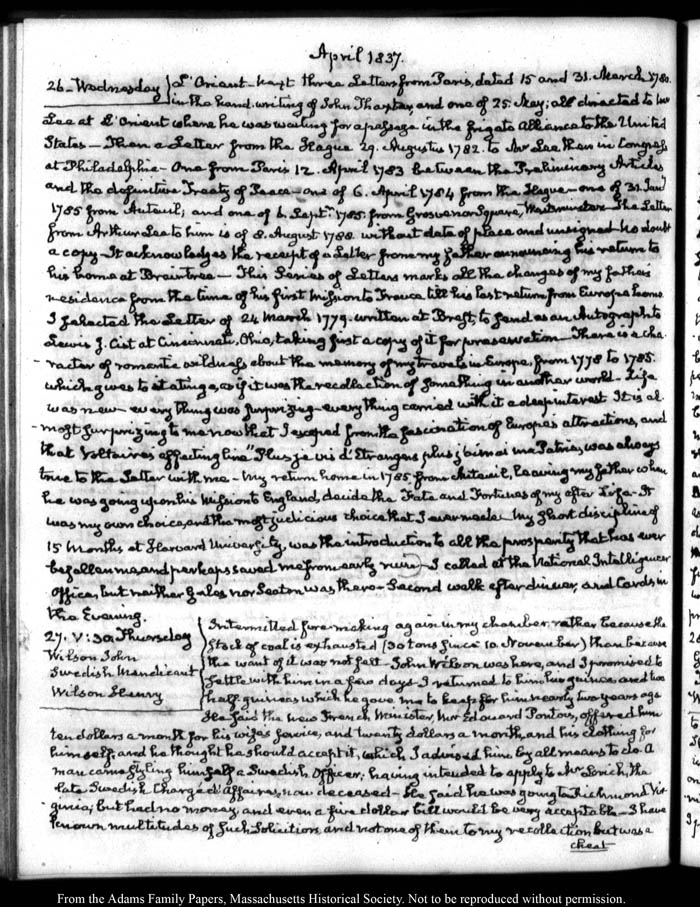 April 1837.
26. Wednesday L'Orient kept three Letters from Paris, dated 15 and 31. March 1780.
in the hand-writing of John Thaxter, and one of 25. May; all directed to Mr
Lee at L'Orient where he was waiting for a passage in the frigate Alliance to the United
States — Then a Letter from the Hague 29. Augustus 1782. to Mr Lee then in Congress
at Philadelphia — One from Paris 12. April 1783 between the Preliminary Articles
and the definitive Treaty of Peace — one of 6. April 1784 from the Hague — one of 31. Jany
1785 from Auteuil; and one of 6. Septr. 1785. from Grosvenor Square, Westminster — The Letter
from Arthur Lee to him is of 8. August 1788 without date of place and unsigned no doubt
a copy — It acknowledges the receipt of a Letter from my father announcing his return to
his home at Braintree — This Series of Letters marks all the changes of my father's
residence from the time of his first Mission to France till his last return from Europe home
I selected the Letter of 24 March 1779. written at Brest, to send as an Autograph to
Lewis J. Cist at Cincinnati, Ohio, taking first a copy of it for preservation — There is a cha-
-racter of romantic wildness about the memory of my travels in Europe, from 1778 to 1785.
which gives to it a tinge, as if it was the recollection of something in another world — Life
was new — every thing was surprizing — every thing carried with it a deep interest. It is al-
-most surprizing to me now that I escaped from the fascination of Europe's attractions, and
that Voltaire's affecting line "Plus je vis d'Etrangers plus j'aimai ma Patrie, was always
true to the Letter with me — My return home in 1785. from Auteuil, leaving my father when
he was going upon his Mission to England, decided the Fate and Fortunes of my after Life — It
was my own choice, and the most judicious choice that I ever made. My short discipline of
15 Months at Harvard University, was the introduction to all the prosperity that has ever
befallen me, and perhaps saved me from early ruin — I called at the National Intelligencer
Office, but neither Gales nor Seaton was there — Second walk after dinner, and Cards in
the Evening.
27. V:30. Thursday
Wilson John
Swedish Mendicant
Wilson Henry
Intermitted fire-making again in my chamber, rather because the
Stock of coal is exhausted (30 tons since 10. November) than because
the want of it was not felt — John Wilson was here, and I promised to
settle with him in a few days — I returned to him his guinea and two
half guineas which he gave me to keep for him nearly two years ago
He said the new French Minister, Mr Edouard Pontois, offered him
ten dollars a month for his wife's service, and twenty dollars a month, and his clothing for
himself, and he thought he should accept it, which I advised him by all means to do. A
man came styling himself a Swedish Officer; having intended to apply to Mr Lorich, the
late Swedish Chargé d'Affaires, now deceased — He said he was going to Richmond Vir-
ginia; but had no money, and even a five dollar bill would be very acceptable — I have
known multitudes of such Solicitors and not one of them to my recollection but was a
cheat
From the Adams Family Papers, Massachusetts Historical Society. Not to be reproduced without permission.